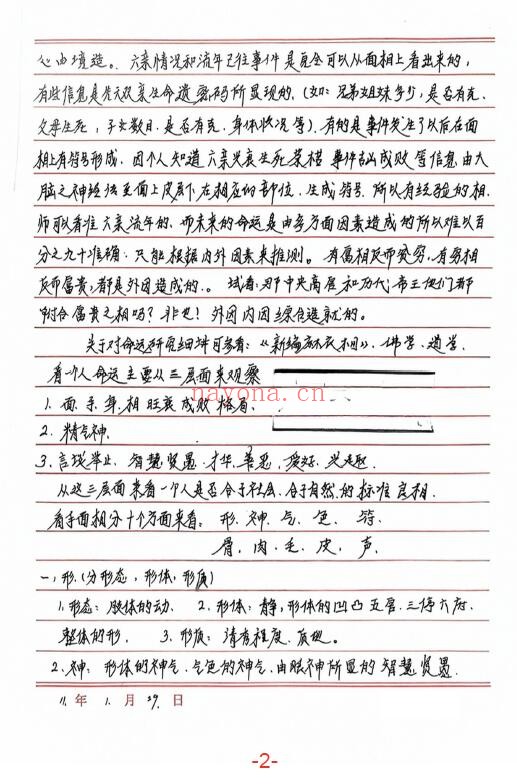 心由境造。六亲情况和流年已往事件是完全可以从面相上看出来的,
有些信息是先天就亲生命遗密码所显现的,(如:兄弟姐妹多少,是否有克,
父母生死,子女数目,是否有克,身体状况等)。有的是事件发生了以后在面
相上有符号形成,因个人知道六亲兴衰生死荣枯事件吉凶成败等信息由大
脑之神经传至面上皮层下,在相应的部位,生成符号,所以有经验的相
师可以看准六亲流年的,而未来的命运是由多方面因素造成的所以难以百
分之九十准确,只能根据内外因素来推测。有富相反而贫穷,有穷相
反而富贵,都是外因造成的。试看,那中央高层和历代帝王他们都
附合富贵之相吗?非也!外因内因综合造就的。
关于对命运研究细排可参看:《新编麻衣相》、佛学、道学、
看一个人命运主要从三层面来观察
nayona.cn
1. 面、手、身、相旺衰成败格局、
2. 精气神、
3. 言谈举止、智慧贤愚、才华、善恶、爱好、兴趣、
从这三层面来看一个人是否合于社会、合于自然的标准良相、
看手面相分十个方面来看:形、神、气、色、符、
骨、肉、毛、皮、声、
一,形(分形态,形体,形质)
1. 形态:肢体的动、 2. 形体:静,形体的凹凸五层,三停六府,
整体的形、 3. 形质:清浊程度、质地。
2. 神:形体的神气、气色的神气,由眼神所显的智慧贤愚、
11. 年 1. 月 29. 日
-2-